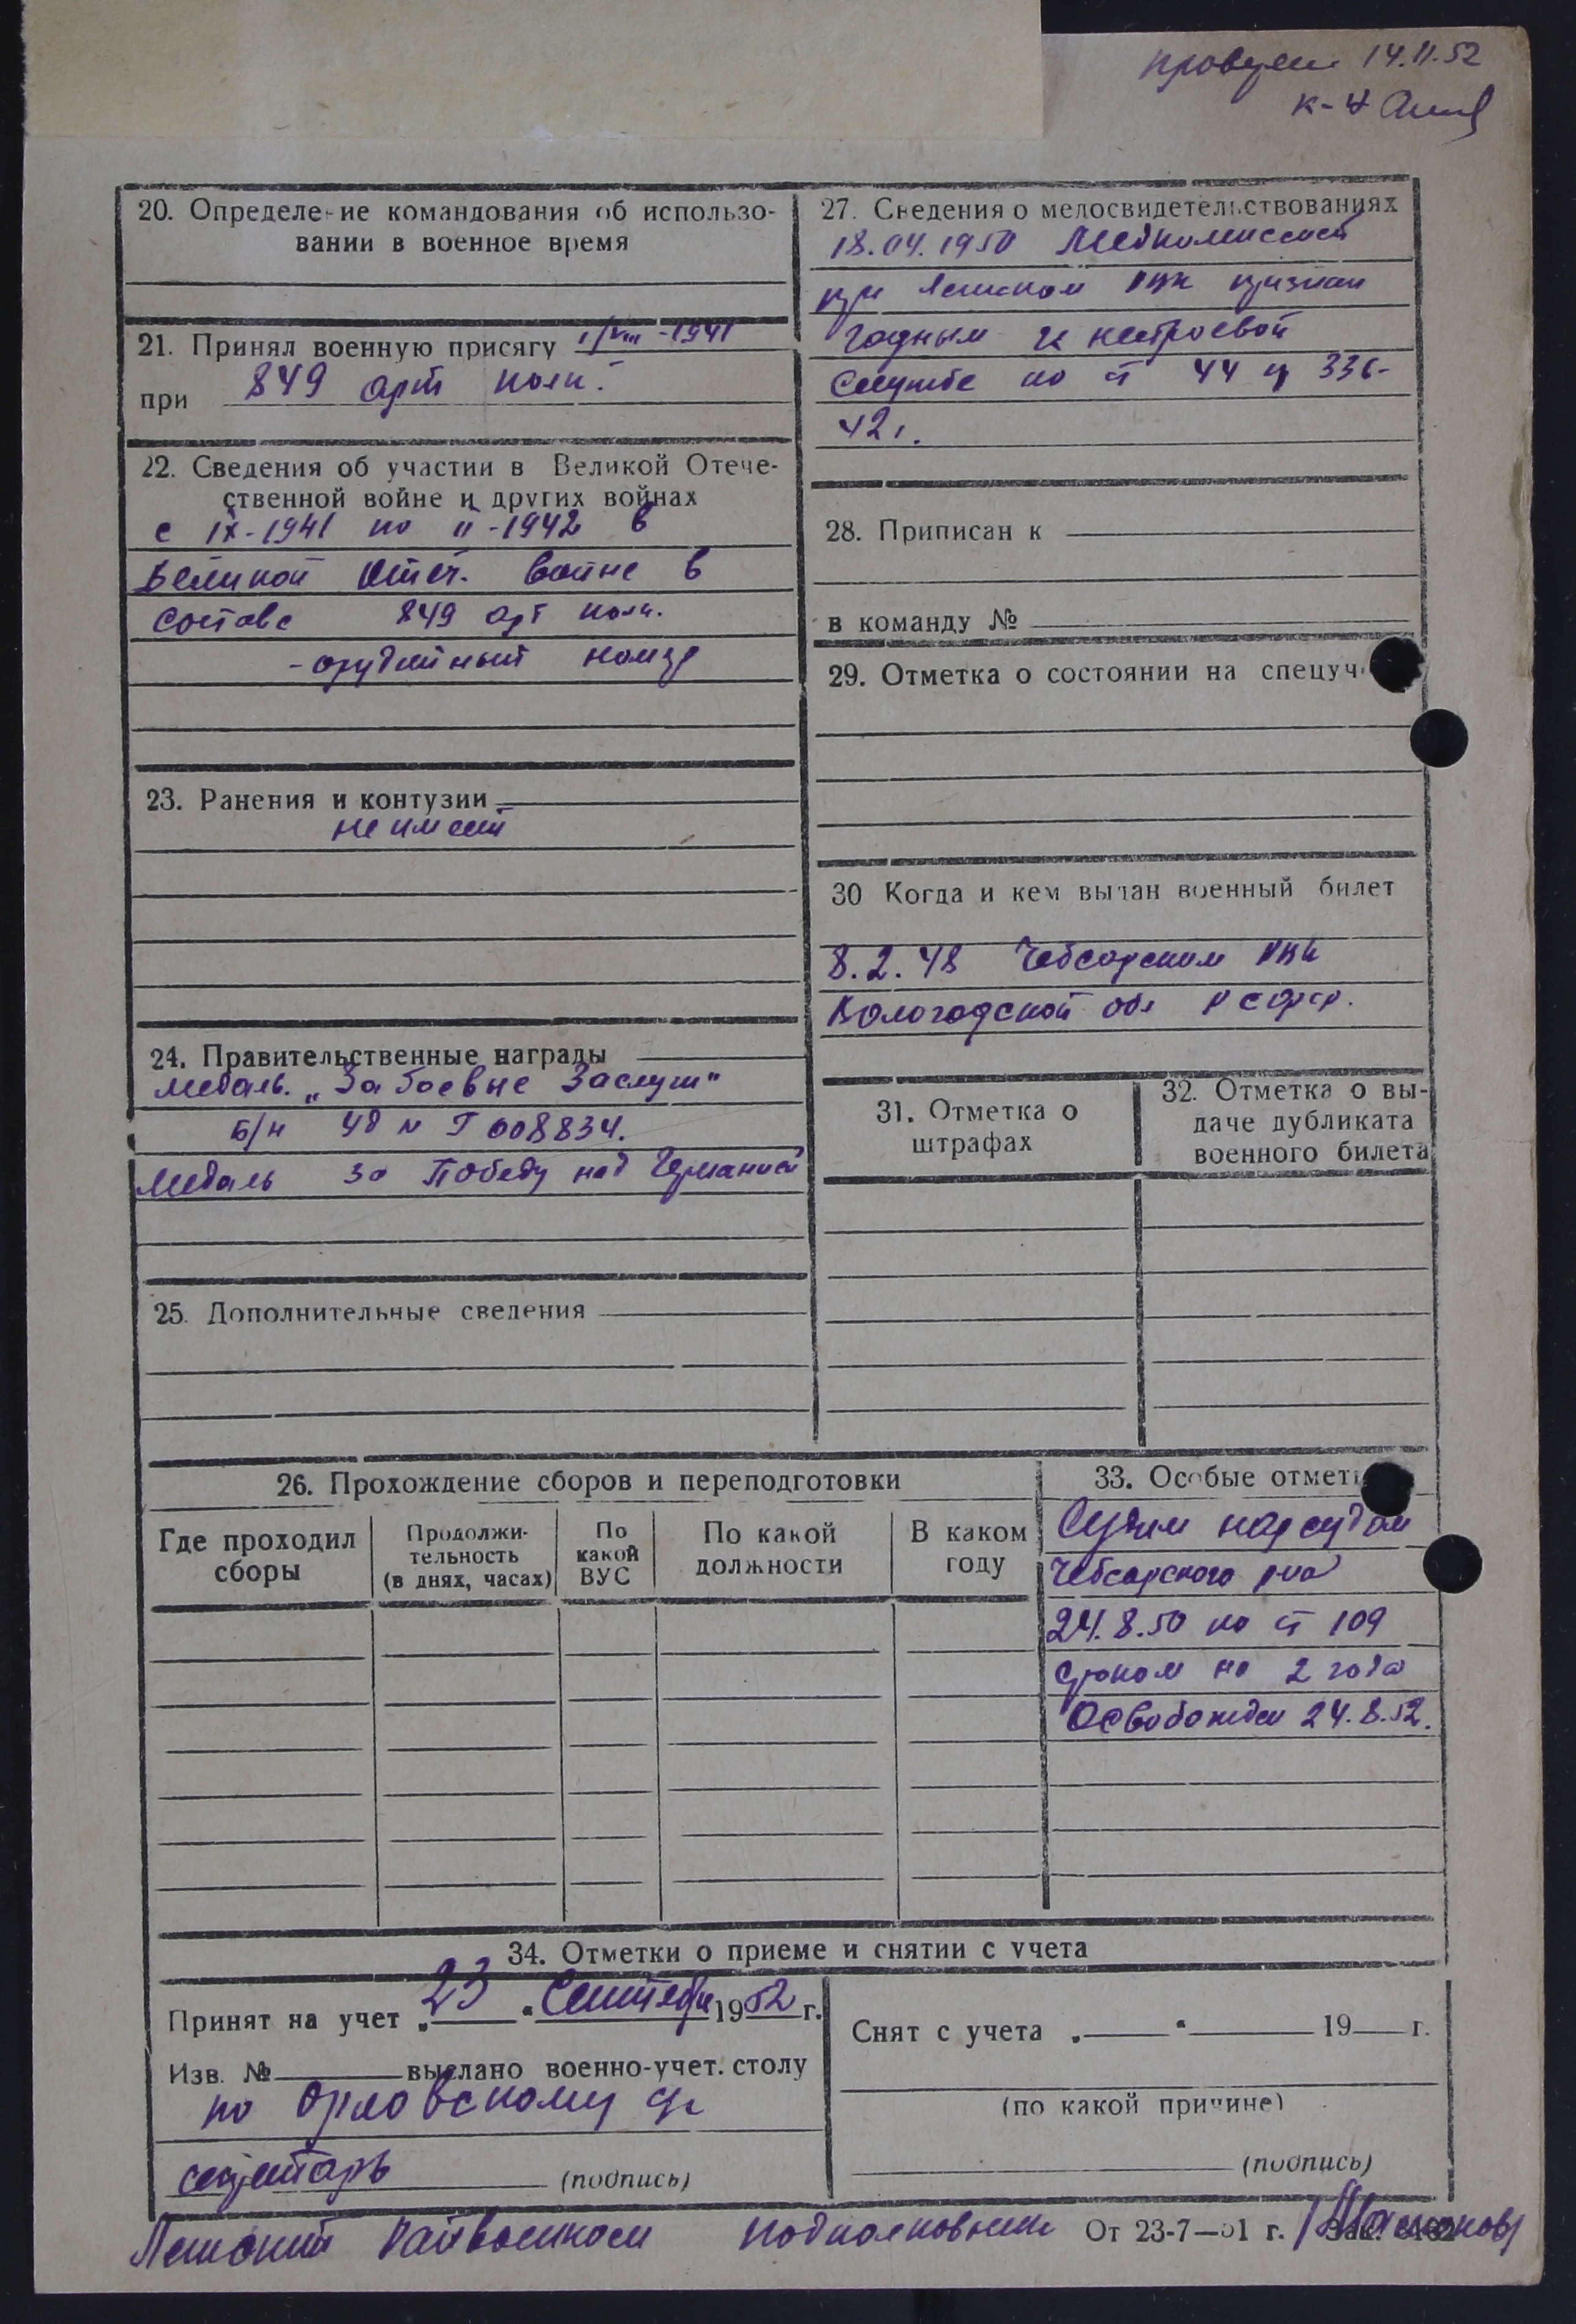 14.11.52
к-н
20. Определение командования об использо-
вании в военное время
21. Принял военную присягу 1/VIII-1941
при 849 арт полк.
22. Сведения об участии в Великой Отече-
ственной войне и других войнах
с IX-1941 по II-1942 в
Великой Отеч. войне в
составе 849 арт полк.
- орудийный номер
23. Ранения и контузии
не имеет
24. Правительственные награды
медаль. „За боевые заслуги"
б/н уд № Г 008834.
Медаль за Победу над Германией
25. Дополнительные сведения
27. Сведения о медосвидетельствованиях
18.04.1950 Медкомиссией
при Ленском РВК признан
годным к нестроевой
службе по ст 44 пр 336-
42 г.
28. Приписан к
в команду №
29. Отметка о состоянии на спецуч
30 Когда и кем выдан военный билет
8.2.48 Чебсарским РВК
Вологодской обл РСФСР.
31. Отметка о
штрафах
32. Отметка о вы-
даче дубликата
военного билета
26. Прохождение сборов и переподготовки
Где проходил
сборы
Продолжи-
тельность
(в днях, часах)
По
какой
ВУС
По какой
должности
В каком
году
33. Особые отмет
Судим нарсудом
Чебсарского р-на
24.8.50 по ст 109
сроком на 2 года
Освобожден 24.8.52.
34. Отметки о приеме и снятии с учета
Принят на учет „23" Сентября 1952 г.
Изв. № выслано военно-учет. столу
по Орловскому с/с
секретарь (подпись)
Снят с учета „ " 19 г.
(по какой причине)
(подпись)
Ленский Райвоенком подполковник От 23-7—51 г. Зак.